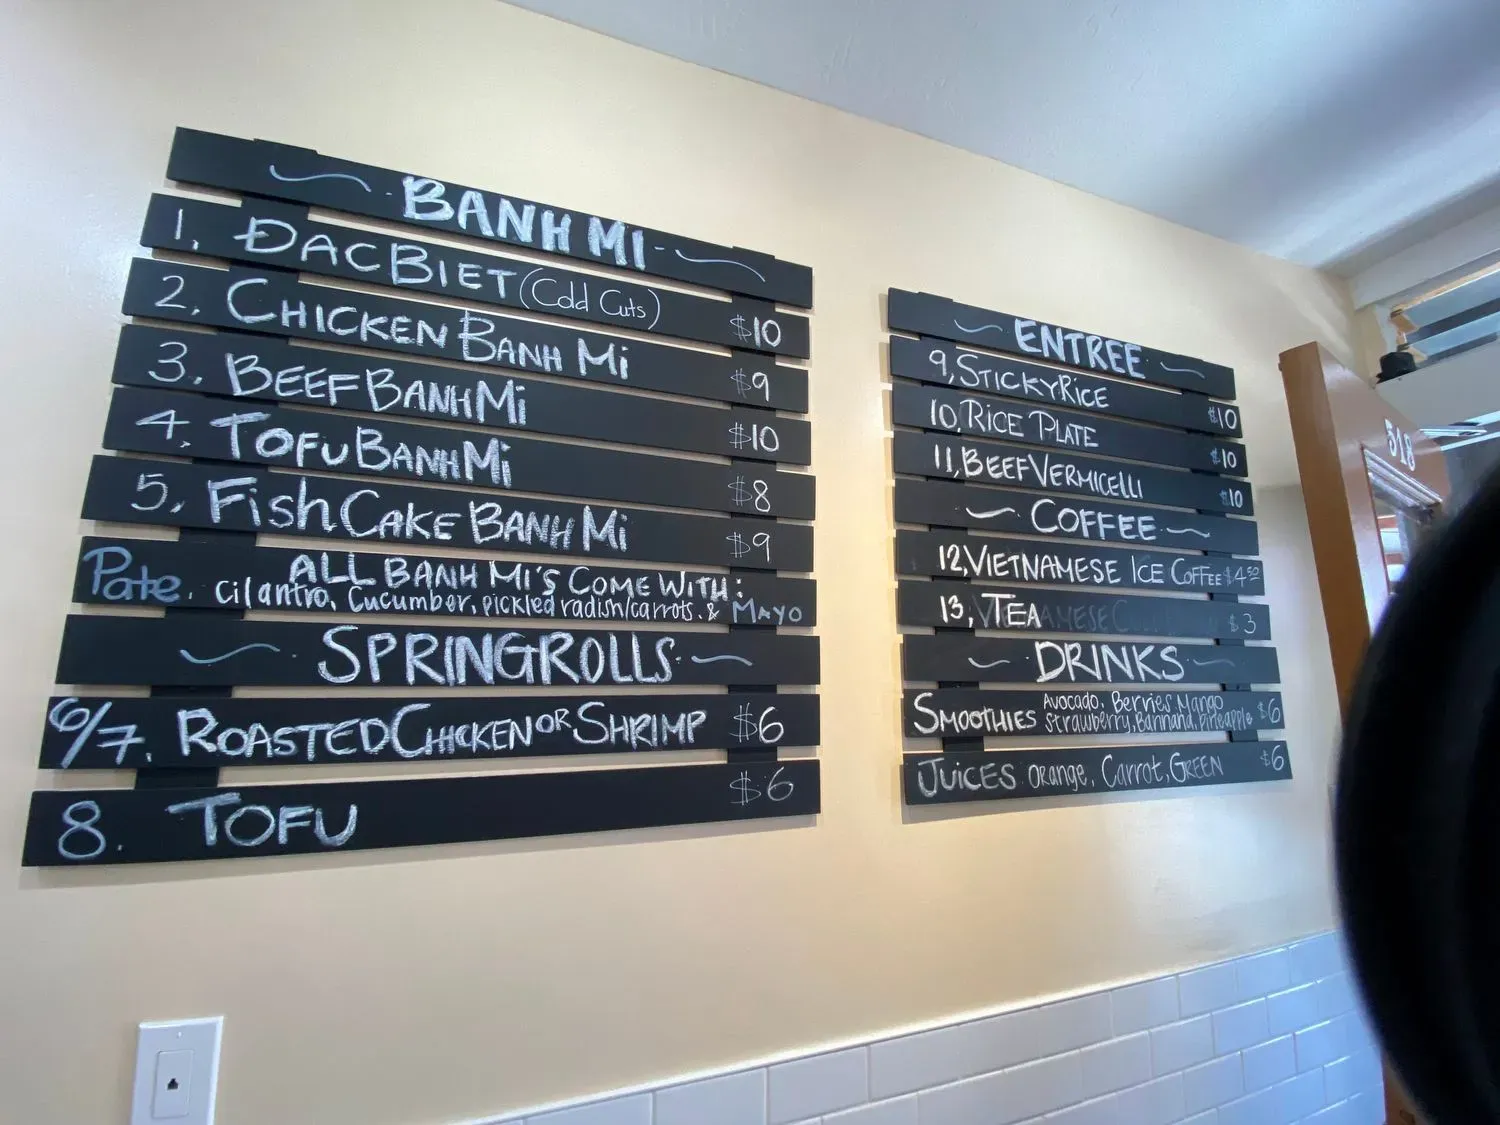 BANH MI
1. ĐAC BIET (Cold Cuts) $10
2. CHICKEN BANH Mi $9
3. BEEF BANH Mi $10
4. TOFU BANH Mi $8
5. Fish CAKE BANH Mi $9
ALL BANH MI'S COME WITH:
Pate. cilantro, Cucumber, pickled radish/carrots. & MAYO
SPRINGROLLS
6/7. ROASTED CHICKEN OR SHRIMP $6
8. TOFU $6
ENTREE
9, STICKY RICE $10
10, RICE PLATE $10
11, BEEF VERMICELLI $10
COFFEE
12, VIETNAMESE ICE COFFEE $4.50
13, TEA $3
DRINKS
SMOOTHIES Avocado, Berries, Mango
Strawberry, Bannana, Pineapple $6
JUICES Orange, Carrot, GREEN $6
518